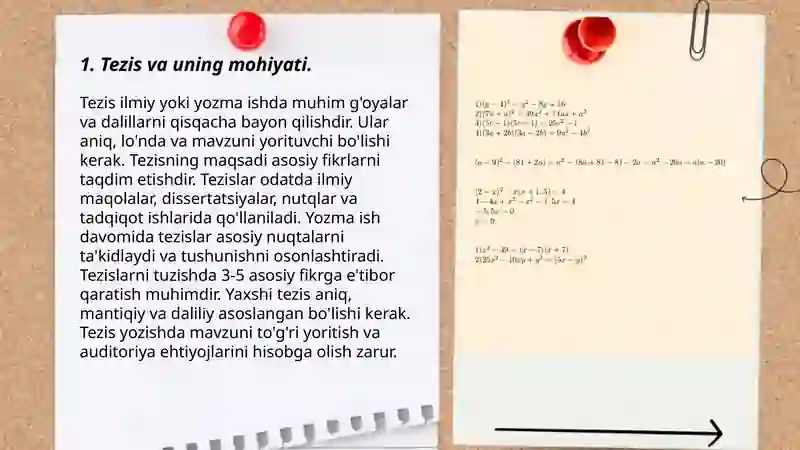 1. Tezis va uning mohiyati.
Tezis ilmiy yoki yozma ishda muhim g'oyalar
va dalillarni qisqacha bayon qilishdir. Ular
aniq, lo'nda va mavzuni yorituvchi bo'lishi
kerak. Tezisning maqsadi asosiy fikrlarni
taqdim etishdir. Tezislar odatda ilmiy
maqolalar, dissertatsiyalar, nutqlar va
tadqiqot ishlarida qo'llaniladi. Yozma ish
davomida tezislar asosiy nuqtalarni
ta'kidlaydi va tushunishni osonlashtiradi.
Tezislarni tuzishda 3-5 asosiy fikrga e'tibor
qaratish muhimdir. Yaxshi tezis aniq,
mantiqiy va daliliy asoslangan bo'lishi kerak.
Tezis yozishda mavzuni to'g'ri yoritish va
auditoriya ehtiyojlarini hisobga olish zarur.
1)(y − 4)² = y² − 8y + 16
4)(3a + 2b)(3a − 2b) = 9a² − 4b²
1)x² − 49 = (x − 7)(x + 7)